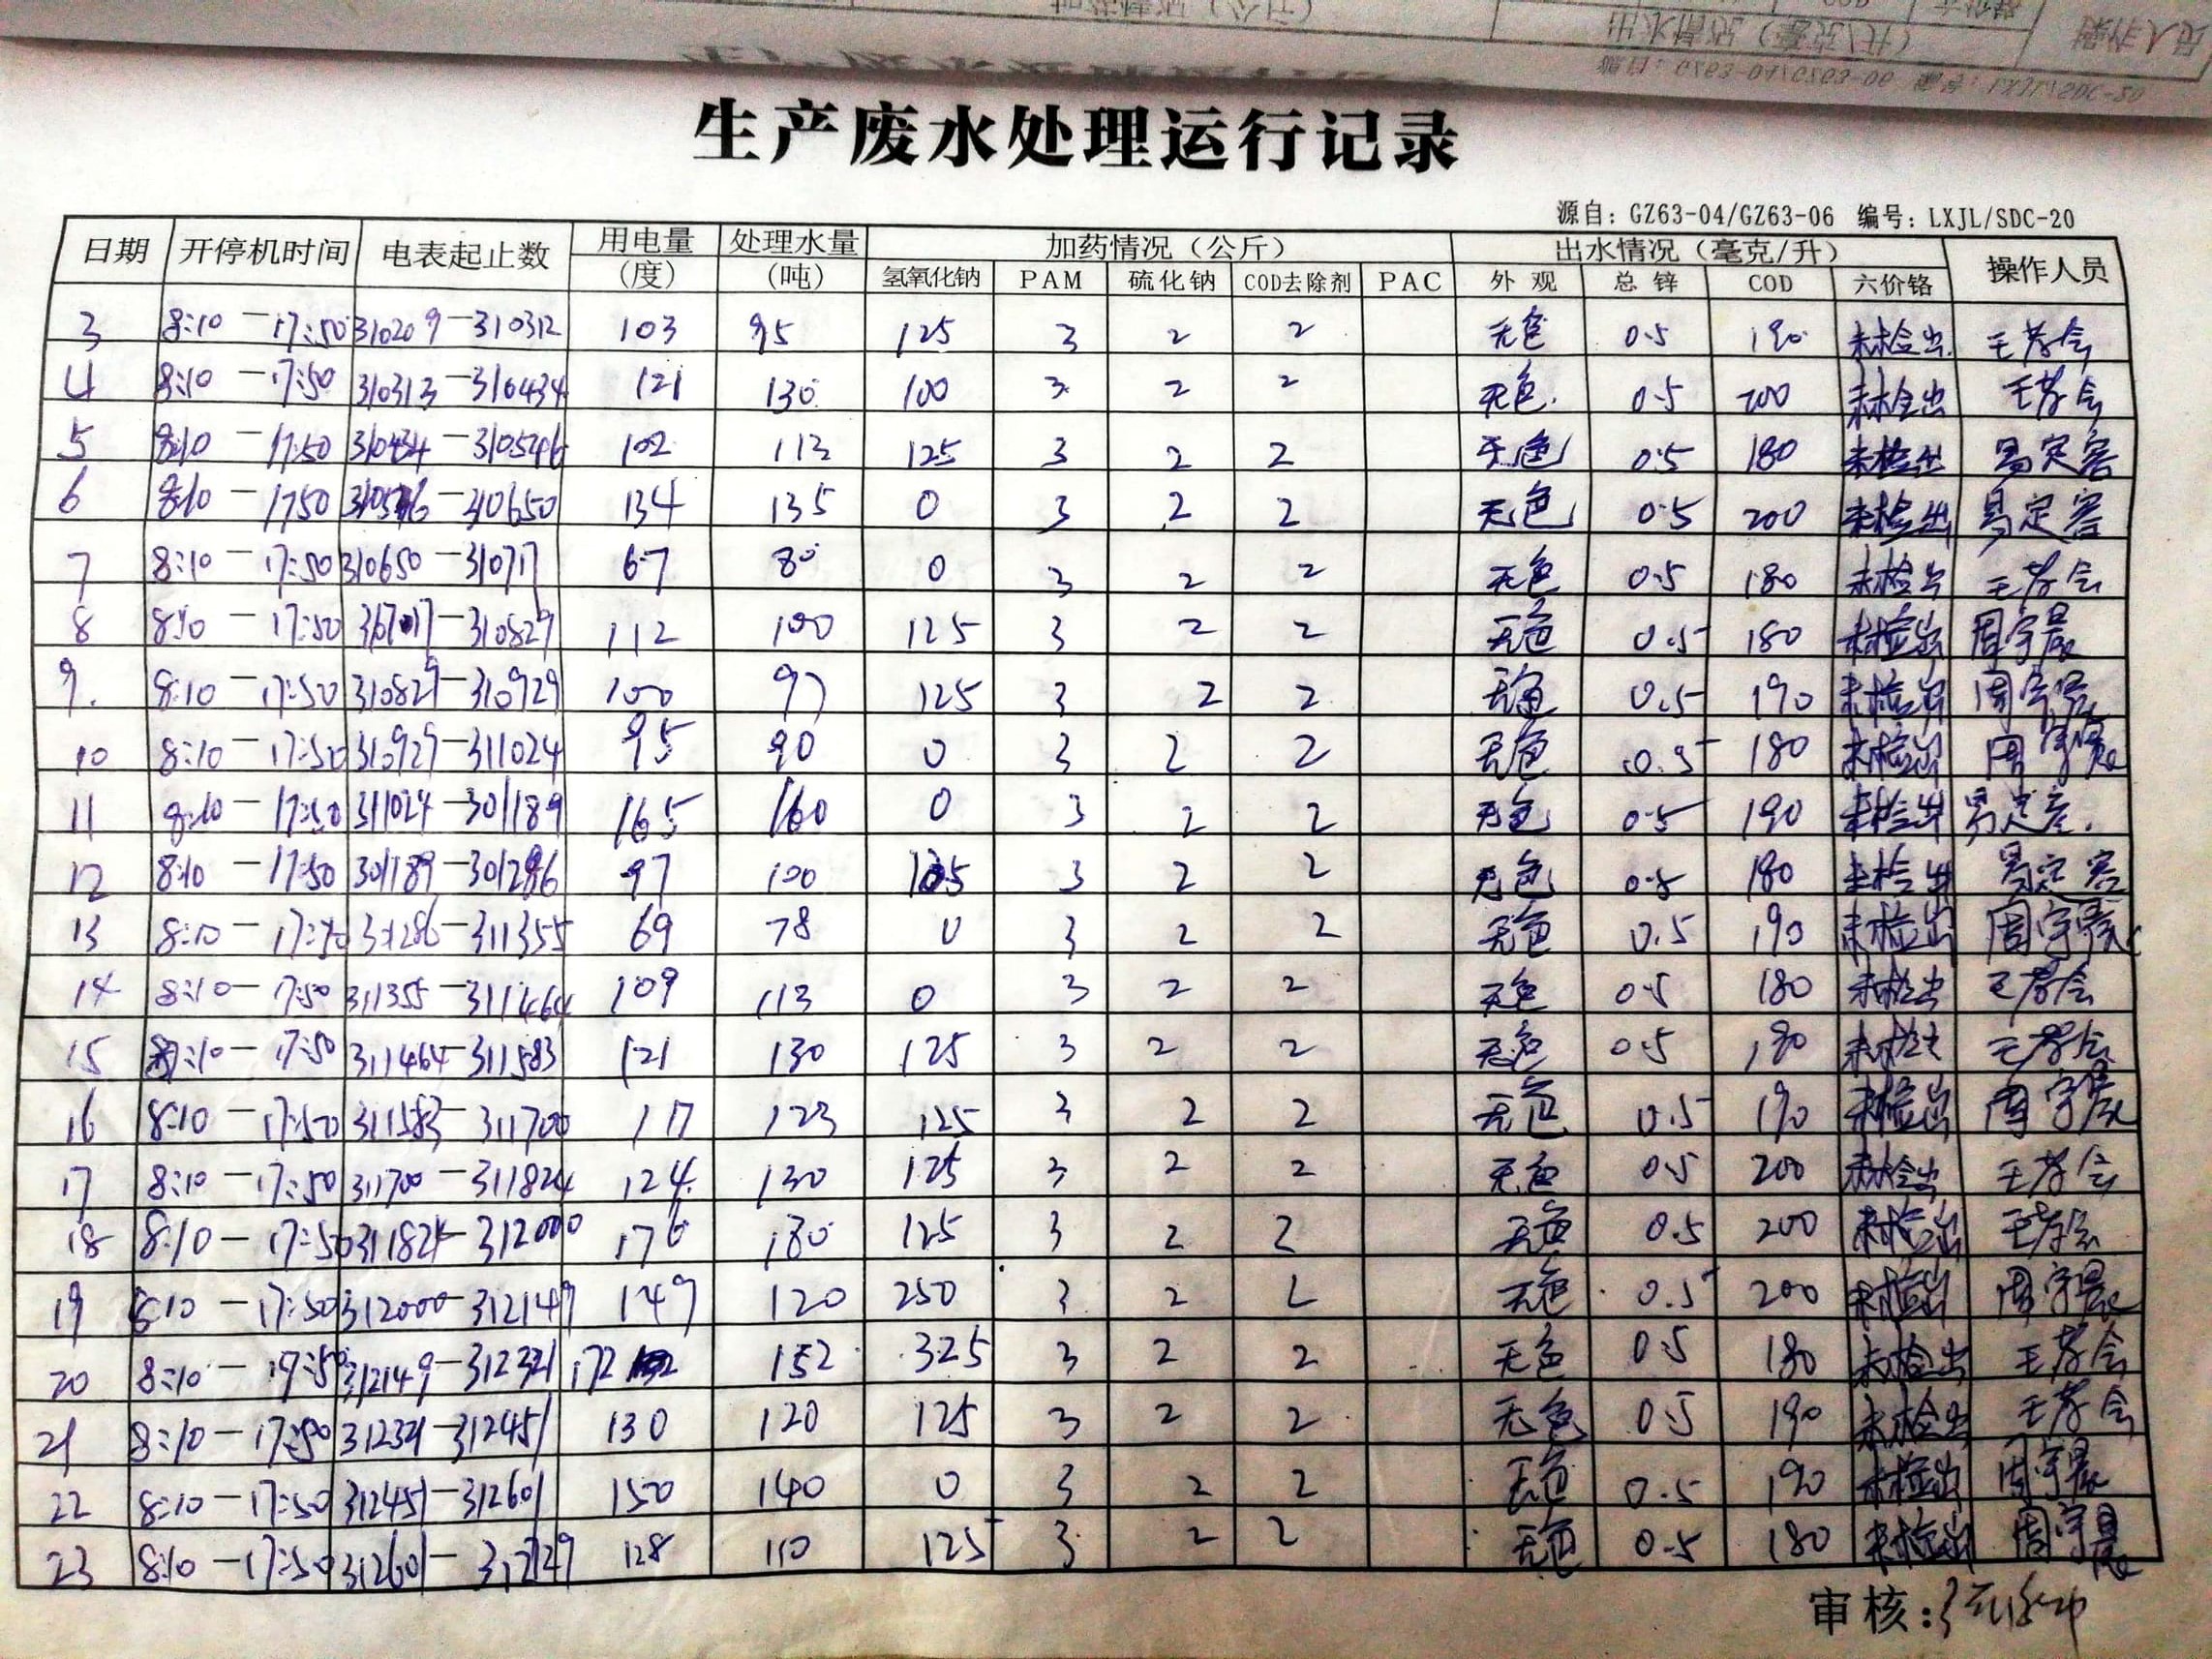 生产废水处理运行记录
源自: GZ63-04/GZ63-06 编号: LXJL/SDC-20
日期 开停机时间 电表起止数 用电量(度) 处理水量(吨) 加药情况(公斤) 出水情况(毫克/升) 操作人员
氢氧化钠 PAM 硫化钠 COD去除剂 PAC 外观 总锌 COD 六价铬
3 8:10-17:50 310209-310312 103 95 125 3 2 2 无色 0.5 190 未检出
4 8:10-17:50 310313-310434 121 130 100 3 2 2 无色 0.5 200 未检出
5 8:10 17:50 310434-310546 102 112 125 3 2 2 无色 0.5 180 未检出
6 8:10-1750 310516-310650 134 135 0 3 2 2 无色 0.5 200 未检出
7 8:10-17:50 310650-310717 67 80 0 3 2 2 无色 0.5 180 未检出
8 8:10-17:50 -310829 112 100 125 3 2 2 无色 0.5 180 未检出 周宇晨
9. 8:10-17:50 310829-310929 100 97 125 3 2 2 无色 0.5 190 未检出 周宇晨
10 8:10-17:50 310929-311024 95 90 0 3 2 2 无色 0.5 180 未检出 周宇晨
11 8:10-17:50 311024-301189 165 160 0 3 2 2 无色 0.5 190 未检出
12 8:10-17:50 301189-301286 97 100 3 2 2 无色 0.5 180 未检出
13 8:10-17:40 31286-311355 69 78 0 3 2 2 无色 0.5 190 未检出 周宇晨
14 8:10-17:50 311355-311464 109 113 0 3 2 2 无色 0.5 180 未检出
15 8:10-17:50 311464-311583 121 130 125 3 2 2 无色 0.5 180 未检出
16 8:10-17:50 311583-311700 117 123 125 3 2 2 无色 0.5 190 未检出 周宇晨
17 8:10-17:50 311700-311824 124 130 125 3 2 2 无色 0.5 200 未检出
18 8:10-17:50 311824-312000 176 180 125 3 2 2 无色 0.5 200 未检出
19 8:10-17:50 312000-312149 149 120 250 3 2 2 无色 0.5 200 未检出 周宇晨
20 8:10-17:50 312149-312321 172 152 325 3 2 2 无色 0.5 180 未检出
21 8:10-17:50 312321-312451 130 120 125 3 2 2 无色 0.5 190 未检出
22 8:10-17:50 312451-312601 150 140 0 3 2 2 无色 0.5 190 未检出 周宇晨
23 8:10-17:50 312601-312729 128 110 125 3 2 2 无色 0.5 180 未检出 周宇晨
审核: